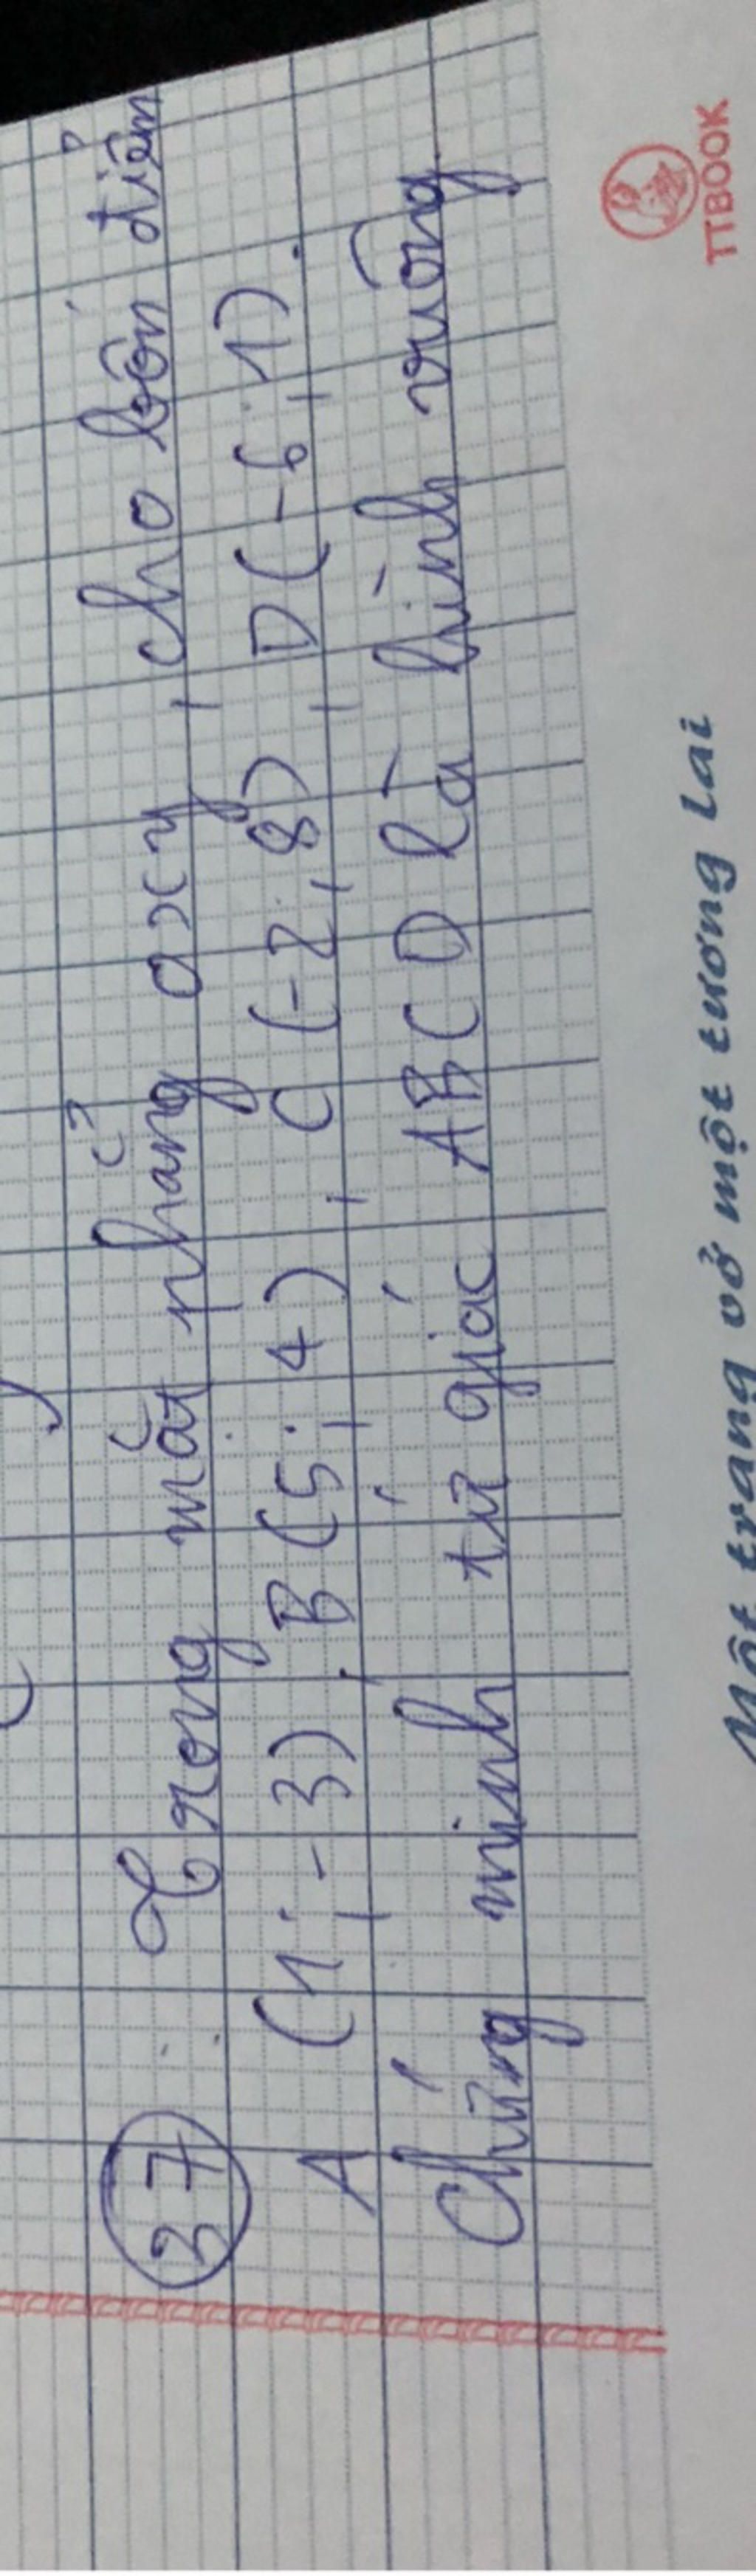 37 Trong mặt phẳng oxy, cho bốn điểm
A (1;-3), B(5;4), C(-2;8), D(-6;1).
Chứng minh tứ giác ABCD là hình vuông
Một trang vở một tương lai
TTBOOK